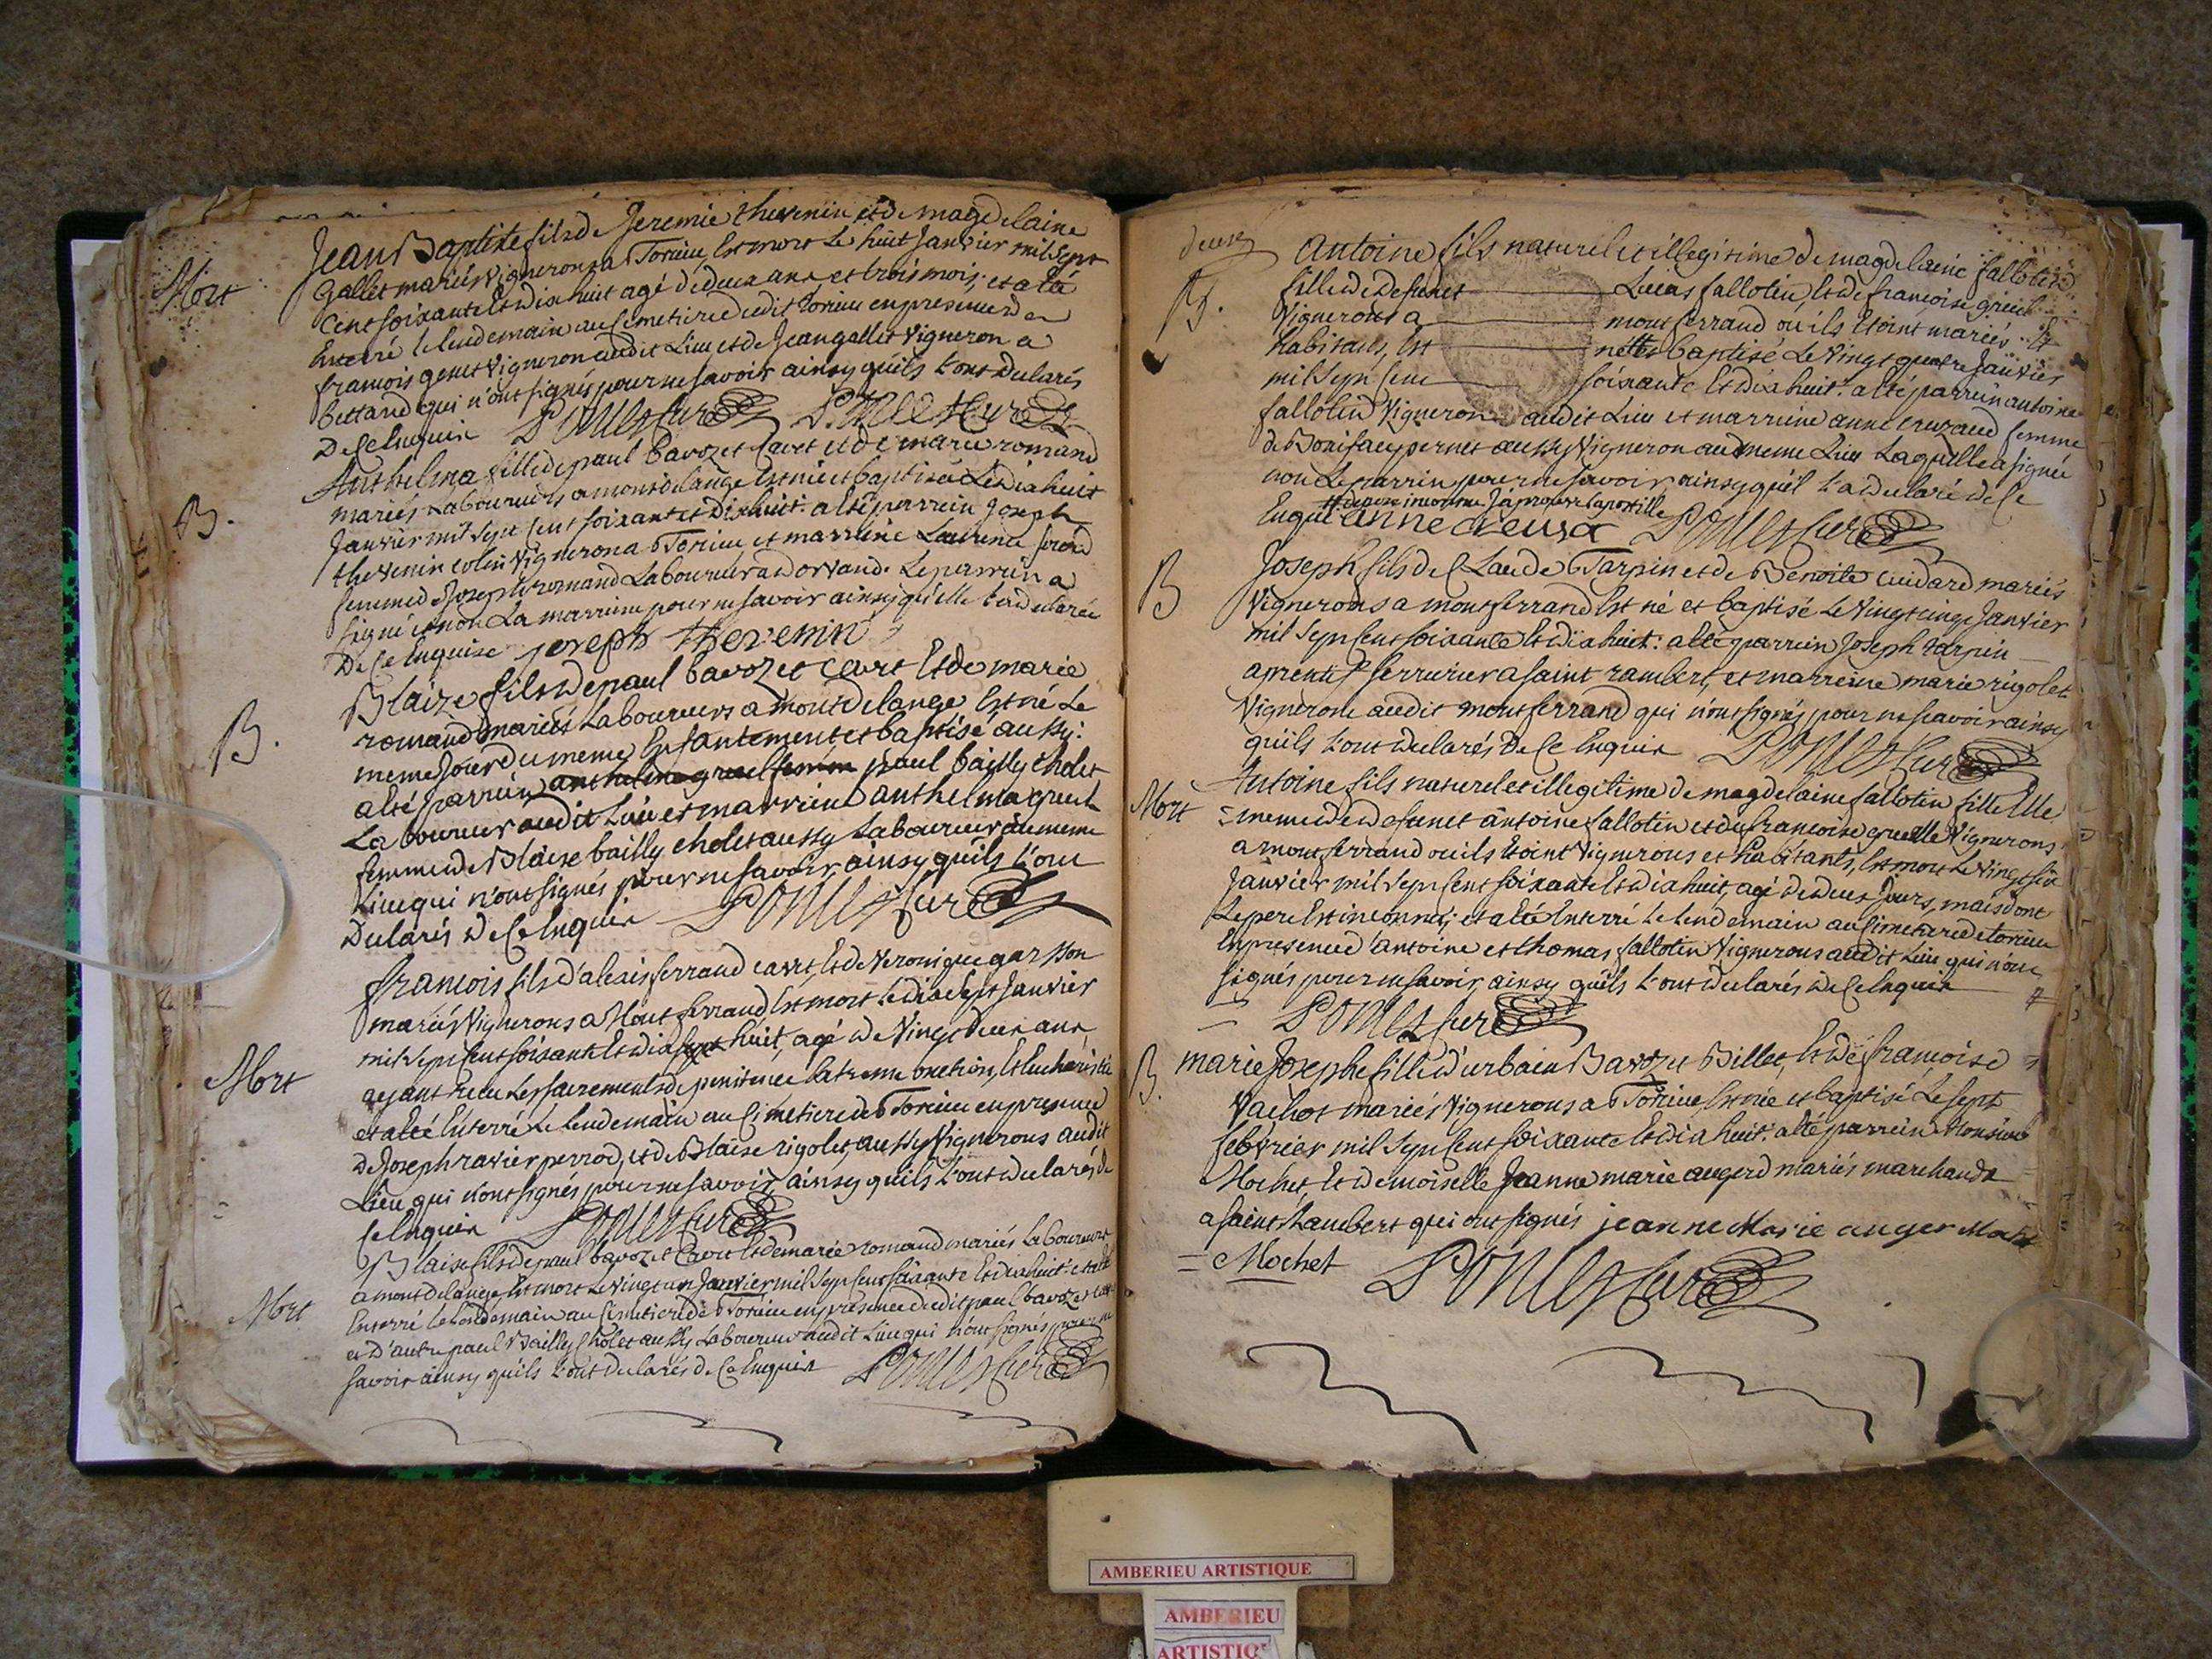 Jean Baptiste fils de Jeremie thevenin et de magdelaine
Mort
Gallet mariés Vignerons a Torcieu, Est mort Le huit Janvier mil sept
Cent soixante Et dix huit agé de deux ans et trois mois; et a eté
Enterré le lendemain au Cimetiere dudit Torcieu en presence de
francois genet Vigneron audit Lieu et de Jean gallet Vigneron a
bettand qui n'ont signés pour ne savoir ainsy quils L'ont declarés
De Ce Enquis
Anthelma fille de paul bavozet Cavet et de marie romand
B.
mariés Laboureurs a montdelange Est née et baptisée Le dix huit
Janvier mil sept Cent soixante et Dix huit. a eté parrein Joseph
thevenin colin Vigneron a Torcieu et marreine Laurence
femme de Joseph romand Laboureur a dorvand. Le parrein a
signé et non La marreine pour ne savoir ainsy qu'elle L'a declarée
De Ce Enquise joseph thevenin
Blaize fils de paul bavozet Cavet Et de marie
B.
romand mariés Laboureurs a montdelange Est né Le
meme Jour du meme Enfantement et baptisé aussy:
a eté parrein anthelma gruel femme paul bailly cholet
Laboureur audit Lieu et marreine anthelma gruel
femme de Blaise bailly cholet aussy Laboureur au meme
Lieu qui n'ont signés pour ne savoir ainsy quils L'ont
declarés De Ce Enquis
francois fils d'alexis ferrand cavet, Et de Veronique garsson
mariés Vignerons a Montferrand Est mort Le dix sept Janvier
mil sept Cent soixante Et dix sept huit, agé de Vingt deux ans
Mort
ayant recu Les sacrements de penitence Extreme onction, Et Eucharistie
et a eté Enterré Le Lendemain au Cimetiere de Torcieu en presence
de Joseph ravier perrod, et de Blaise rigolet, aussy Vignerons audit
Lieu, qui n'ont signés pour ne savoir ainsy quils L'ont declarés de
Ce Enquis
Blaise fils de paul bavozet Cavet Et de marie romand mariés Laboureurs
a montdelange Est mort Le Vingt un Janvier mil sept Cent soixante Et dix huit: et a eté
Mort
Enterré Le Lendemain au Cimetiere de Torcieu en presence dudit paul bavozet
et D'autre paul Bailly Cholet aussy Laboureur audit Lieu qui n'ont signés pour ne
savoir ainsy quils L'ont declarés de Ce Enquis
Antoine fils naturel et illegitime de magdelaine fallotin
B.
fille de Defunct Lucas fallotin, Et de francoise gruel
Vignerons a montferrand ou ils Etoint mariés Et
habitants, Est né et baptisé Le Vingt quatre Janvier
mil sept Cent soixante Et dix huit: a eté parrein antoine
fallotin Vigneron audit Lieu et marreine anne cruzaud femme
de Boniface pernet aussy Vigneron au meme Lieu Laquelle a signée
non Le parrein pour ne savoir ainsy qu'il L'a declaré de Ce
Enquis anne creusa
Joseph fils de Claude Tarpin et de Benoite cuidard mariés
B
Vignerons a montferrand Est né et baptisé Le Vingt cinq Janvier
mil sept Cent soixante Et dix huit: a eté parrein Joseph tarpin
aprentif serrurier a saint rambert, et marreine marie rigolet
Vigneronne audit montferrand qui n'ont signés pour ne savoir ainsy
quils L'ont declarés De Ce Enquis
Antoine fils naturel et illegitime de magdelaine fallotin fille Elle
Mort
= meme de defunct antoine fallotin et de francoise gruelle Vignerons
a montferrand ou ils Etoint Vignerons et habitants, Est mort Le Vingt six
Janvier mil sept Cent soixante Et dix huit, agé de deux Jours, mais dont
Le pere Est inconnu; et a eté Enterré Le Lendemain au Cimetiere de torcieu
En presence d'antoine et thomas fallotin Vignerons audit Lieu qui n'ont
signés pour ne savoir, ainsy quils L'ont declarés de Ce Enquis
marie Josephe fille d'urbain Bavozet Billet, Et de francoise
B.
Vachot mariés Vignerons a Torcieu Est née et baptisé Le sept
febvrier mil sept Cent soixante Et dix huit: a eté parrein Monsieur
Mochet Et demoiselle Jeanne marie augerd mariés marchands
a saint Rambert qui ont signés jeanne Marie auger
= Mochet
AMBERIEU ARTISTIQUE
AMBERIEU
ARTISTIQ